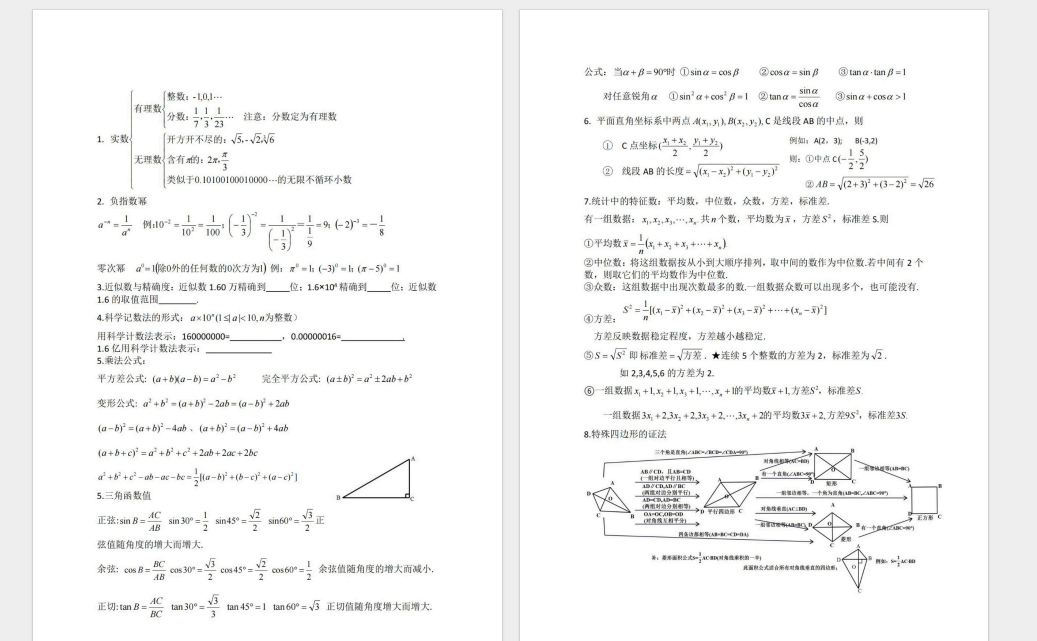 1. 实数
有理数
整数：-1,0,1⋯
分数：1/7, 1/3, 1/23⋯ 注意：分数定为有理数
无理数
开方开不尽的：√5,-√2,∛6
含有π的：2π,π/3
类似于0.10100100010000⋯的无限不循环小数
2. 负指数幂
a⁻ⁿ=1/aⁿ 例:10⁻²=1/10²=1/100；(-1/3)⁻²=1/(-1/3)²=1/(1/9)=9；(-2)⁻³=-1/8
零次幂 a⁰=1(除0外的任何数的0次方为1) 例：π⁰=1；(-3)⁰=1；(π-5)⁰=1
3.近似数与精确度：近似数 1.60 万精确到_____位；1.6×10⁴精确到_____位；近似数
1.6 的取值范围________.
4.科学记数法的形式：a×10ⁿ(1≤|a|<10,n为整数）
用科学计数法表示：160000000=___________，0.00000016=_____________.
1.6 亿用科学计数法表示：_____________
5.乘法公式：
平方差公式: (a+b)(a-b)=a²-b² 完全平方公式: (a±b)²=a²±2ab+b²
变形公式: a²+b²=(a+b)²-2ab=(a-b)²+2ab
(a-b)²=(a+b)²-4ab 、(a+b)²=(a-b)²+4ab
(a+b+c)²=a²+b²+c²+2ab+2ac+2bc
a²+b²+c²-ab-ac-bc=1/2[(a-b)²+(b-c)²+(a-c)²]
5.三角函数值
A
B
C
正弦:sin B=AC/AB sin30°=1/2 sin45°=√2/2 sin60°=√3/2 正
弦值随角度的增大而增大.
余弦: cos B=BC/AB cos30°=√3/2 cos45°=√2/2 cos60°=1/2 余弦值随角度的增大而减小.
正切:tan B=AC/BC tan30°=√3/3 tan45°=1 tan60°=√3 正切值随角度增大而增大.
公式：当α+β=90°时 ①sinα=cosβ ②cosα=sinβ ③tanα·tanβ=1
对任意锐角α ①sin²α+cos²β=1 ②tanα=sinα/cosα ③sinα+cosα>1
6. 平面直角坐标系中两点A(x₁,y₁),B(x₂,y₂),C 是线段 AB 的中点，则
① C 点坐标(x₁+x₂/2,y₁+y₂/2) 例如：A(2，3); B(-3,2)
则：①中点 C(-1/2,5/2)
② 线段 AB 的长度=√(x₁-x₂)²+(y₁-y₂)²
②AB=√(2+3)²+(3-2)²=√26
7.统计中的特征数：平均数，中位数，众数，方差，标准差.
有一组数据：x₁,x₂,x₃,⋯,xₙ.共n个数，平均数为x̄，方差S²，标准差S.则
①平均数x̄=1/n(x₁+x₂+x₃+⋯+xₙ)
②中位数：将这组数据按从小到大顺序排列，取中间的数作为中位数.若中间有 2 个
数，则取它们的平均数作为中位数.
③众数：这组数据中出现次数最多的数.一组数据众数可以出现多个，也可能没有.
④方差：S²=1/n[(x₁-x̄)²+(x₂-x̄)²+(x₃-x̄)²+⋯+(xₙ-x̄)²]
方差反映数据稳定程度，方差越小越稳定.
⑤S=√S² 即标准差=√方差．★连续 5 个整数的方差为 2，标准差为√2.
如 2,3,4,5,6 的方差为 2.
⑥一组数据x₁+1,x₂+1,x₃+1,⋯,xₙ+1的平均数x̄+1,方差S²，标准差S.
一组数据3x₁+2,3x₂+2,3x₃+2,⋯,3xₙ+2的平均数3x̄+2,方差9S²，标准差3S.
8.特殊四边形的证法
三个角是直角(∠ABC=∠BCD=∠CDA=90°)
对角线相等(AC=BD)
AB∥CD，且AB=CD
(一组对边平行且相等)
AD∥CD,AD∥BC
(两组对边分别平行)
AD=CD,AD=BC
(两组对边分别相等)
OA=OC,OB=OD
(对角线互相平分)
有一个直角(∠ABC=90°)
矩形
一组邻边相等(AB=BC)
一组邻边相等，一个角为直角(AB=BC,∠ABC=90°)
平行四边形
对角线垂直(AC⊥BD)
正方形
一组邻边相等(AB=BC)
菱形
有一个直角(∠ABC=90°)
四条边都相等(AB=BC=CD=DA)
补：菱形面积公式S=1/2AC·BD(对角线乘积的一半)
此面积公式适合所有对角线垂直的四边形：
例如：S=1/2AC·BD